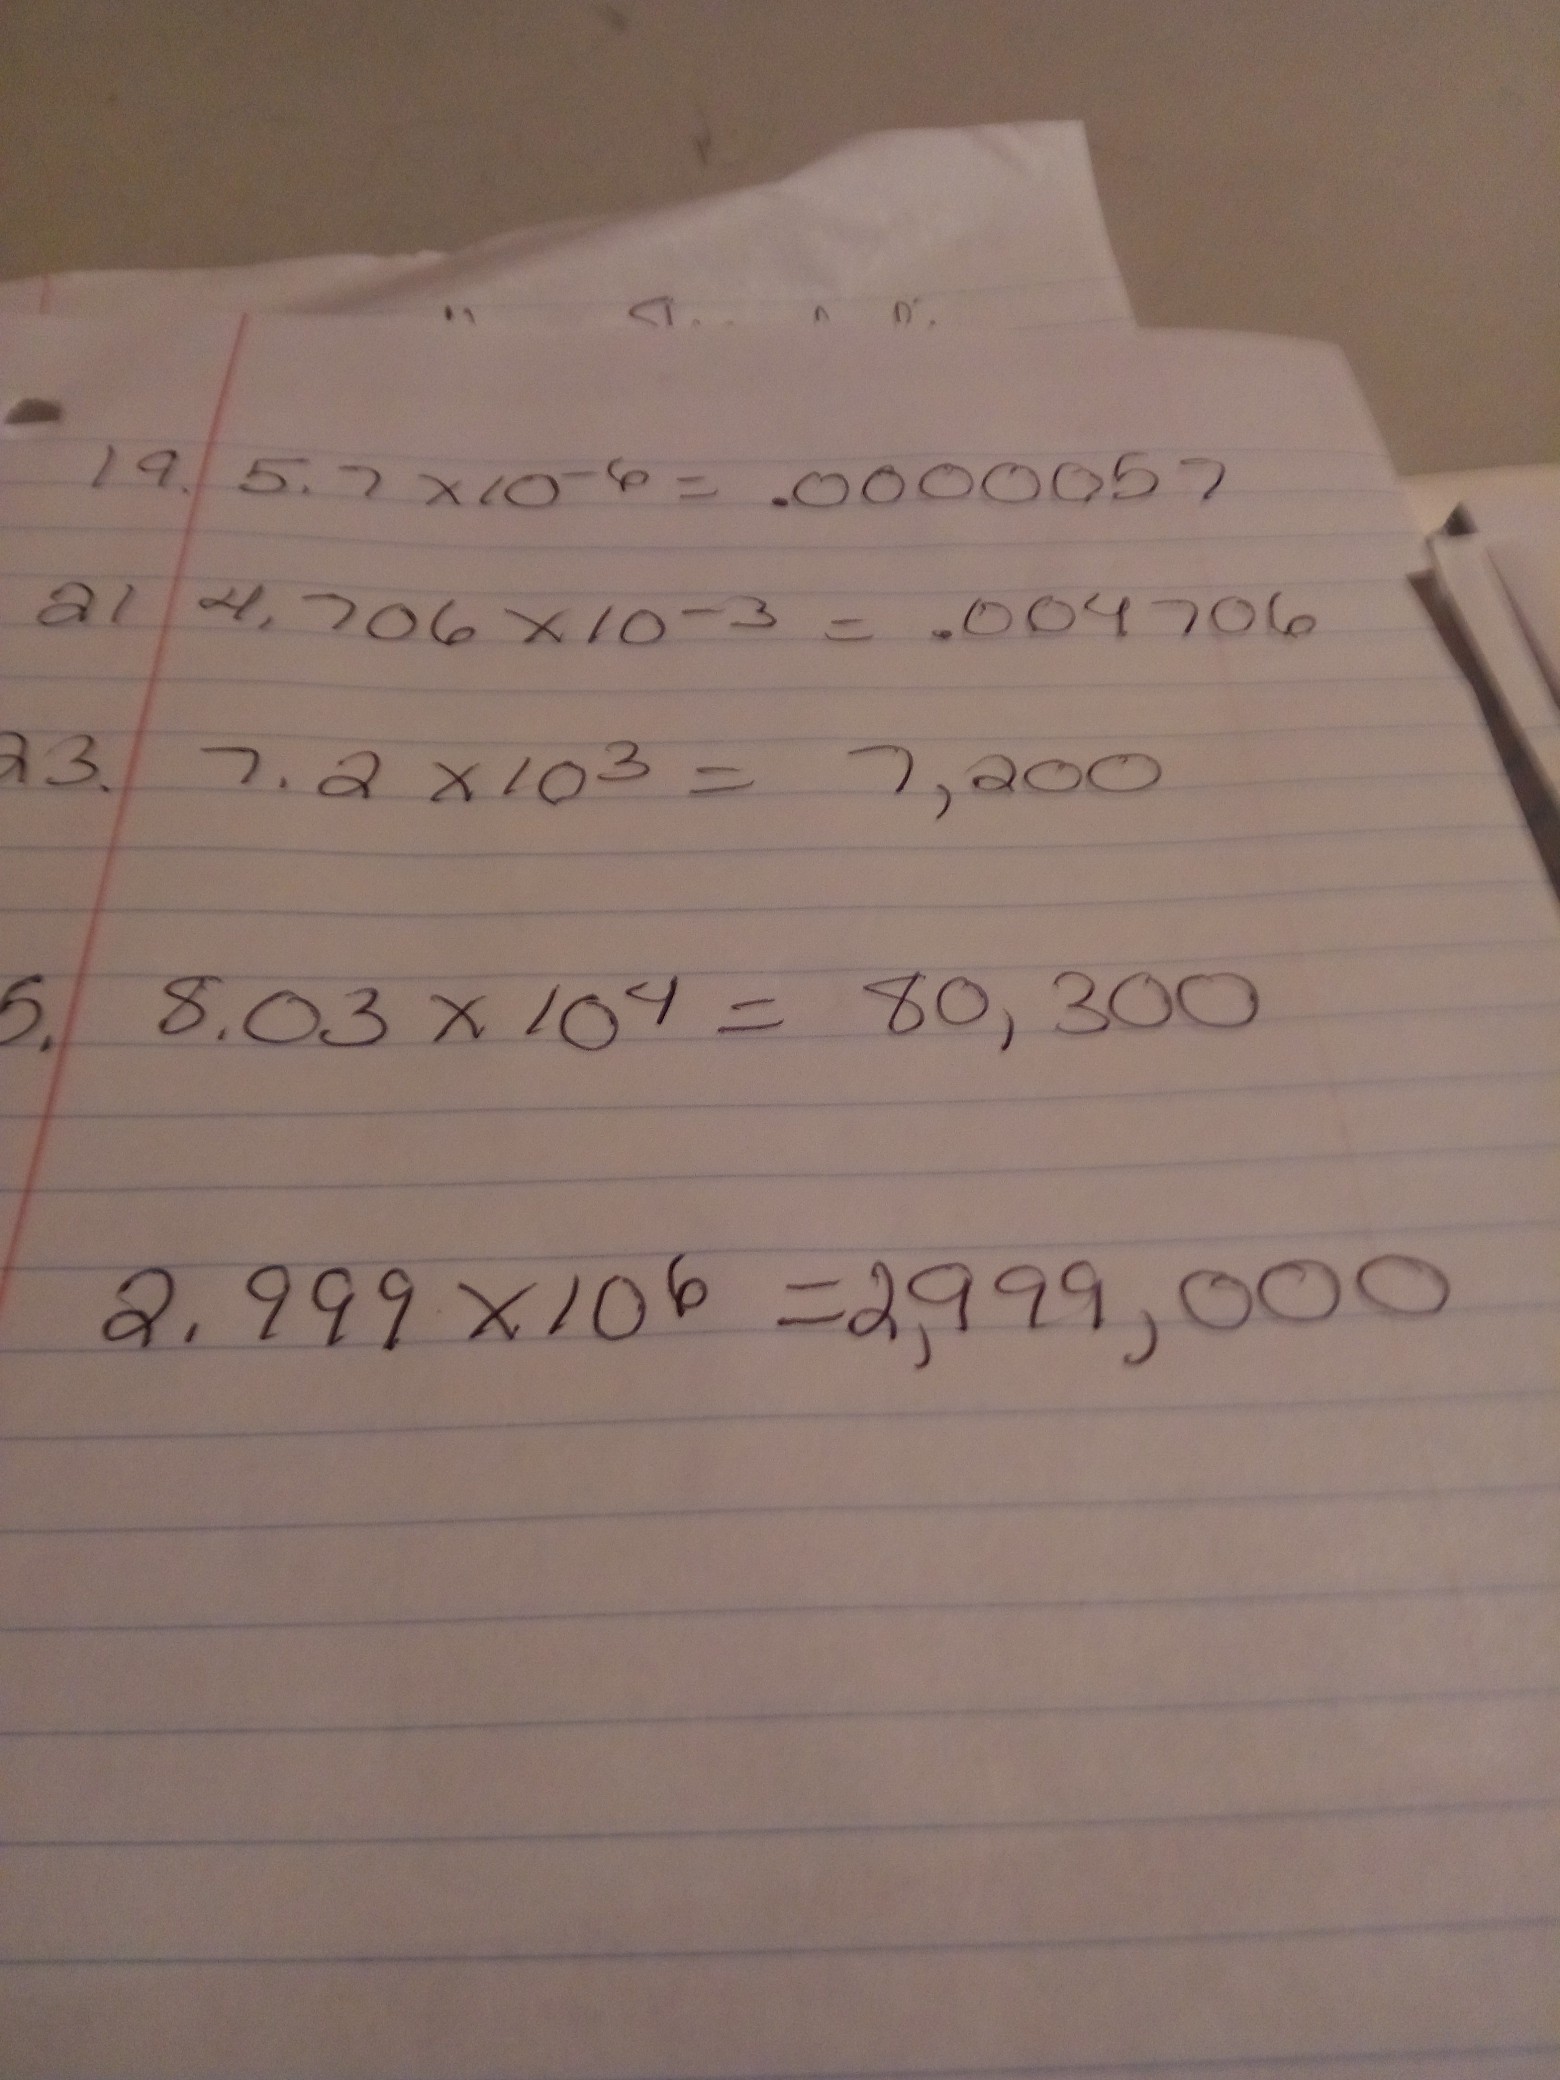 19. 5.7 x10⁻⁶ = .0000057
21 4.706 x10⁻³ = .004706
23. 7.2 x10³ = 7,200
5. 8.03 x 10⁴ = 80,300
2.999 x10⁶ =2,999,000